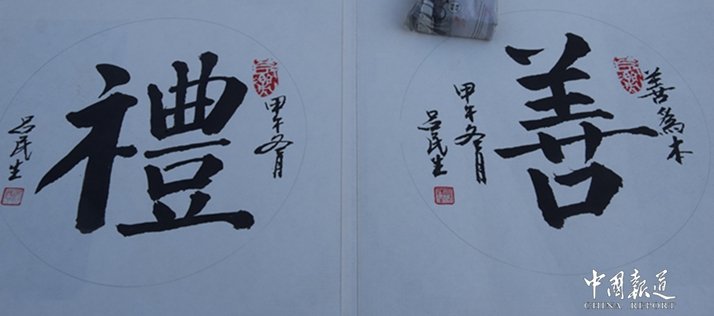 禮
甲午冬月
吕民生
善為本
善
甲午冬月
吕民生
中國報道
CHINA REPORT